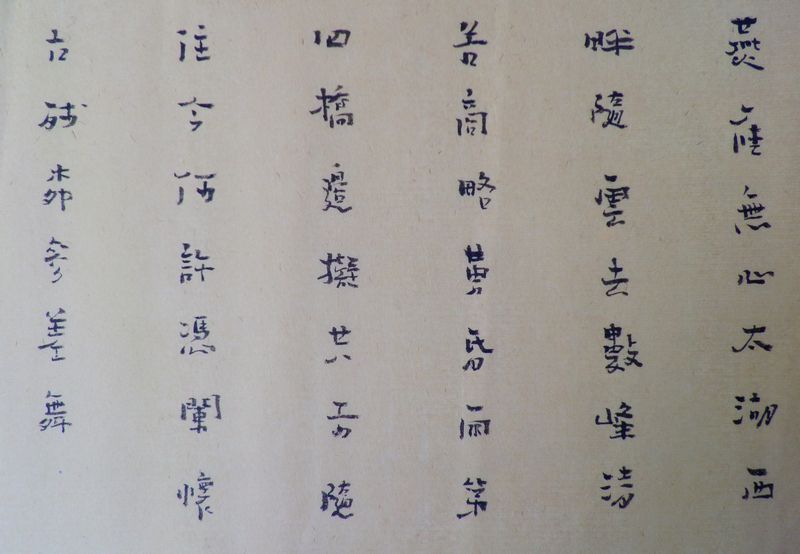 燕雁無心太湖西
畔隨雲去數峰清
苦商略黃昏雨第
四橋邊擬共天隨
住今何許憑闌懷
古殘柳參差舞